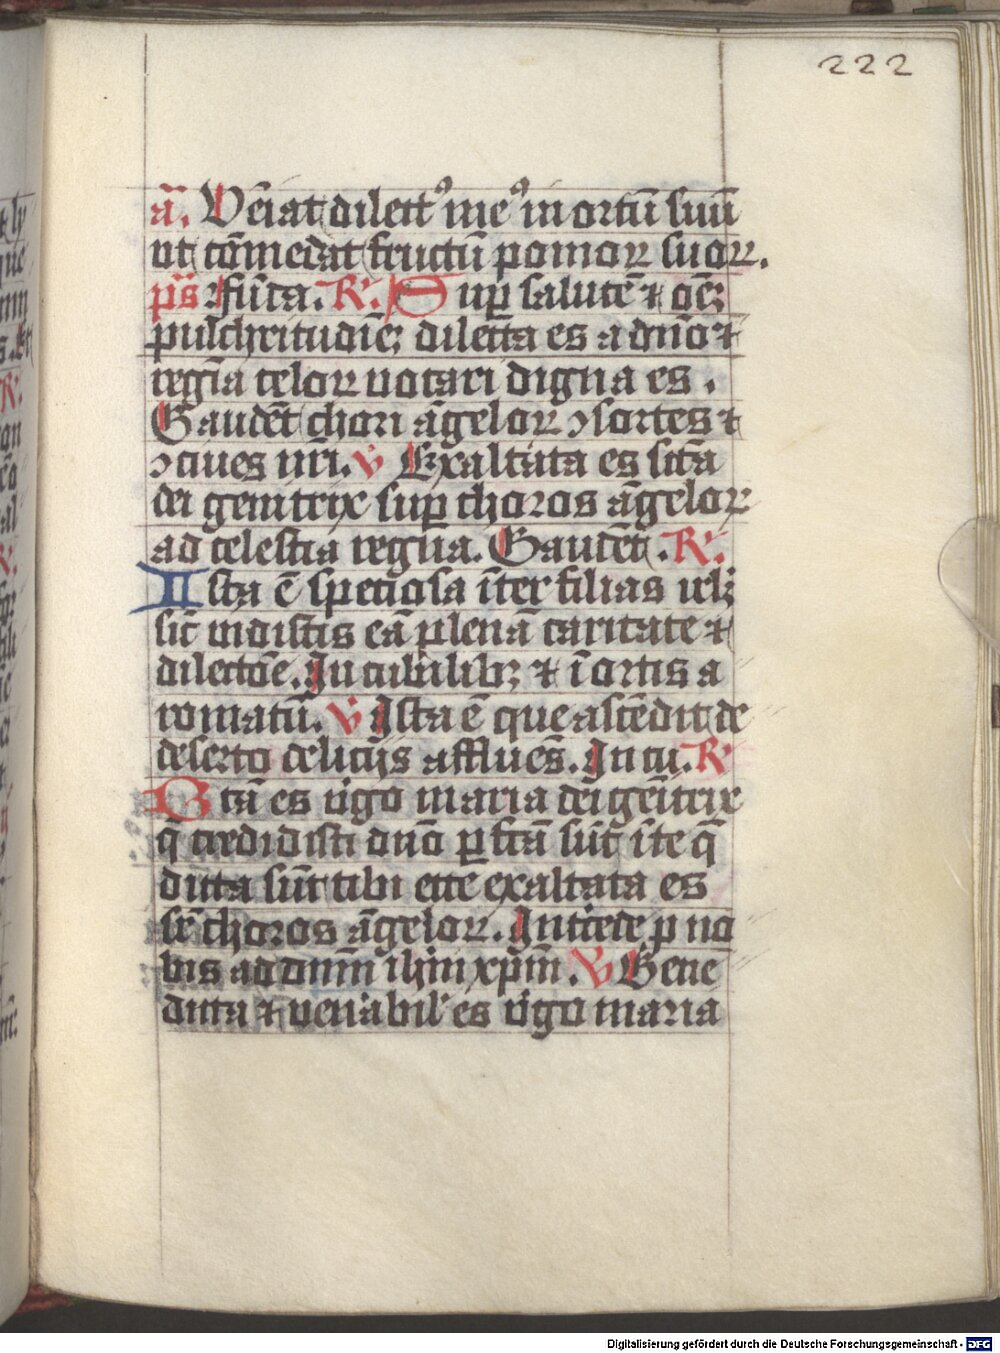 222
aᷓ. Ve᷃iat dilect⁹ me⁹ in ortū suū
ut cōmedat fructū pomoꝝ suoꝝ.
ps̄ Fūda. R̷. Suꝑ salutē ⁊ oēꝫ
pulchritudiēꝫ dilecta es a dn̄o ⁊
regīa celoꝝ uocari digna es.
Gaudēt chori āgeloꝝ ↄsortes ⁊
ↄciues nr̄i. V̷ Exaltata es scт̄a
dei genitrix suꝑ choros āgeloꝝ
ad celestia regna. Gaudēt. R̷.
Ista ē speciosa īter filias ierl̄ꝫ
sic̄ uidistis eā plenā caritate ⁊
dilectōe. In cubilibꝫ ⁊ ī ortis a
romatū. V̷ Ista ē que ascēdit de
deserto deliciis affluēs. In cu. R̷
Btā es v̄igo maria dei geītrix
q̄ credidisti dn̄o ꝑfcā sūt ī te q̄
dicta sūt tibi ecce exaltata es
sr̄ choros āgeloꝝ. Intcede ꝓ no
bis ad dn̄m ih̄m xp̄m. V̷ Bene
dicta ⁊ uen̄abil' es v̄igo maria
Digitalisierung gefördert durch die Deutsche Forschungsgemeinschaft - DFG